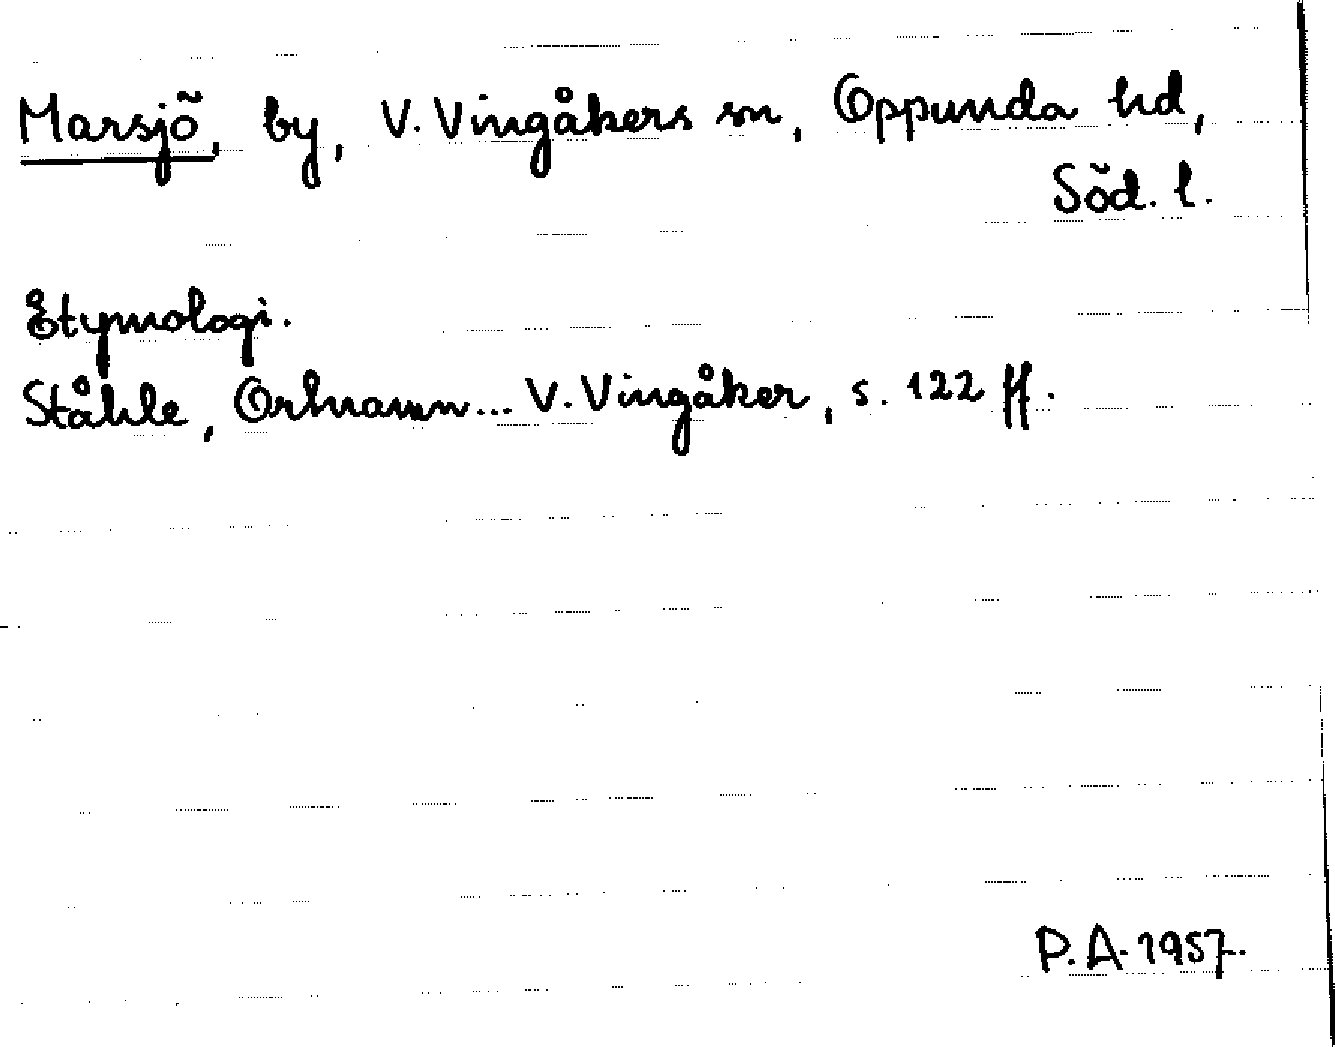 Marsjö, by, V. Vingåkers sn, Oppunda hd,
Söd. l.
Etymologi.
Ståhle, Ortnamn... V. Vingåker, s. 122 ff.
P.A. 1957.